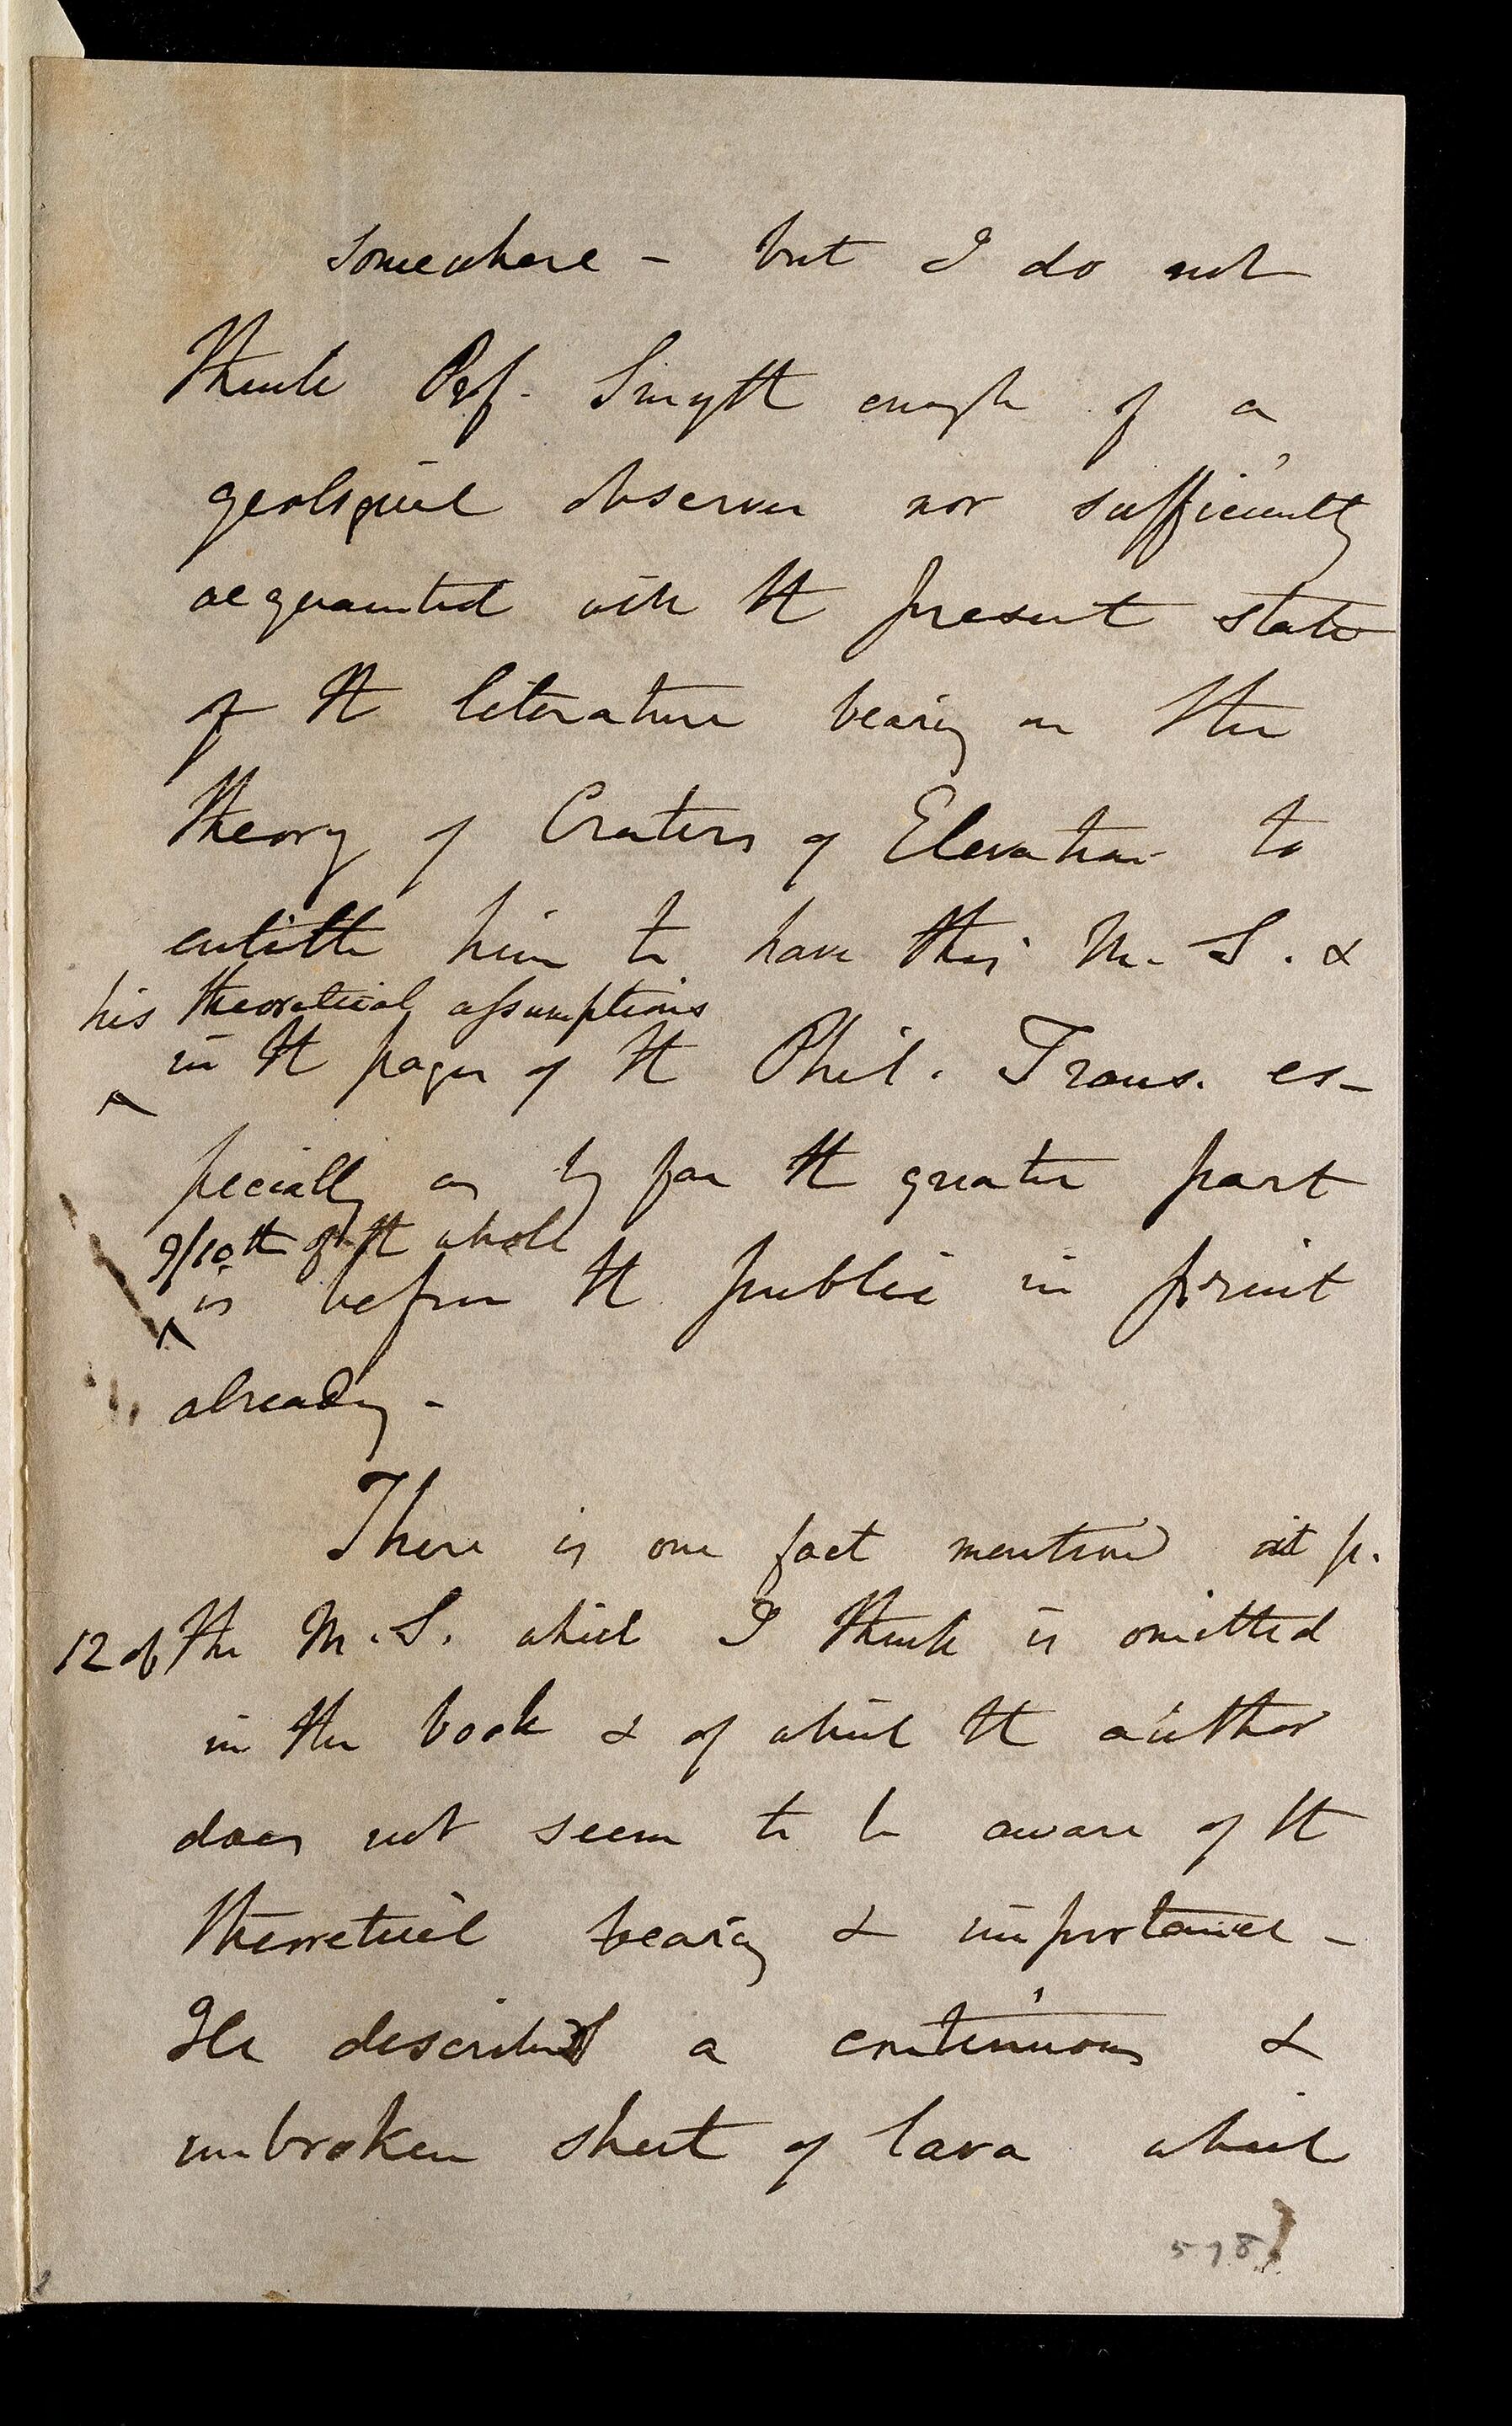 somewhere – but I do not
think Prof. Smyth enough of a
geological observer nor sufficiently
acquainted with the present state
of the literature bearing on the
theory of Craters of Elevation to
entitle him to have this M. S. &
his theoretical assumptions
in the pages of the Phil. Trans. es-
pecially as by far the greater part
9/10th of the whole
is before the public in print
already –
There is one fact mentioned at p.
12 of the M. S. which I think is omitted
in the book & of which the author
does not seem to be aware of the
theoretical bearing & importance –
He describes a continuous &
unbroken sheet of lava which
578